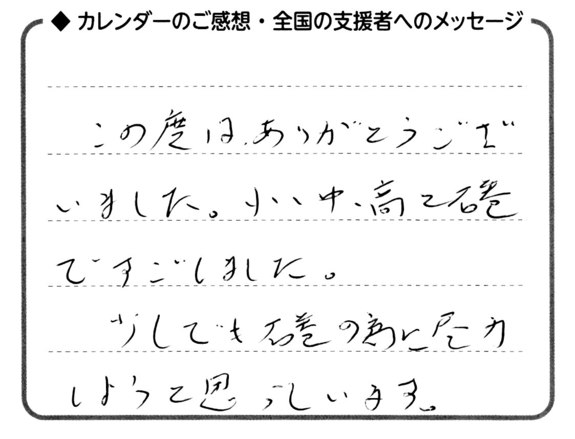 ◆ カレンダーのご感想・全国の支援者へのメッセージ
この度は、ありがとうござ
いました。小、中、高と石巻
ですごしました。
少しでも石巻の為に尽力
しようと思っています。